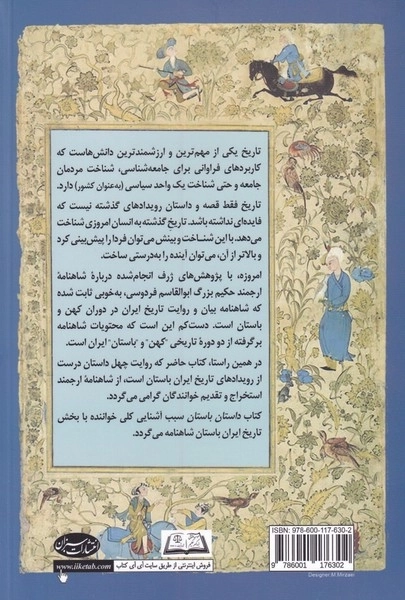 تاریخ یکی از مهم‌ترین و ارزشمندترین دانش‌هاست که
کاربردهای فراوانی برای جامعه‌شناسی، شناخت مردمان
جامعه و حتی شناخت یک واحد سیاسی (به‌عنوان کشور) دارد.
تاریخ فقط قصه و داستان رویدادهای گذشته نیست که
فایده‌ای نداشته باشد. تاریخ گذشته به انسان امروزی شناخت
می‌دهد. با این شناخت و بینش می‌توان فردا را پیش‌بینی کرد
و بالاتر از آن، می‌توان آینده را به‌درستی ساخت.
امروزه، با پژوهش‌های ژرف انجام‌شده دربارهٔ شاهنامهٔ
ارجمند حکیم بزرگ ابوالقاسم فردوسی، به‌خوبی ثابت شده
که شاهنامه بیان و روایت تاریخ ایران در دوران کهن و
باستان است. دست‌کم این است که محتویات شاهنامه
برگرفته از دو دورهٔ تاریخی "کهن" و "باستان" ایران است.
در همین راستا، کتاب حاضر که روایت چهل داستان درست
از رویدادهای تاریخ ایران باستان است، از شاهنامهٔ ارجمند
استخراج و تقدیم خوانندگان گرامی می‌گردد.
کتاب داستان باستان سبب آشنایی کلی خواننده با بخش
تاریخ ایران باستان شاهنامه می‌گردد.
ISBN: 978-600-117-630-2
9 786001 176302
Designer.M.Mirzaei
انتشارات سبزان
www.iiketab.com
فروش اینترنتی از طریق سایت آی آی کتاب